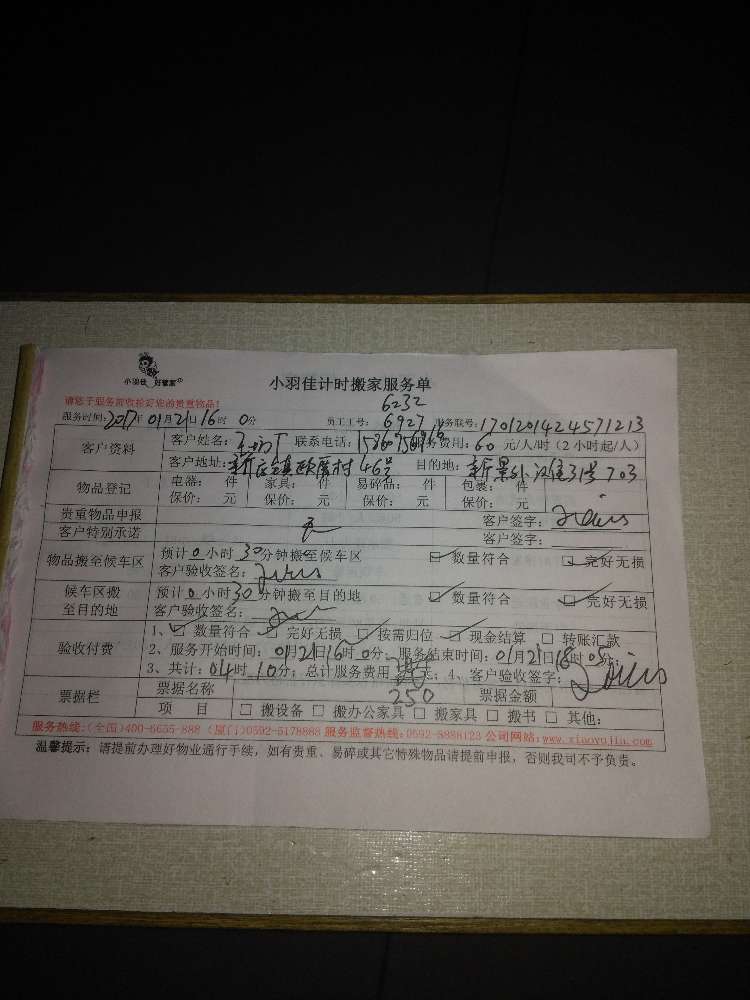 小羽佳 好管家
小羽佳计时搬家服务单
请您于服务前收拾好您的贵重物品!
6232
服务时间: 2017年01月21日16时0分 员工工号: 6927 服务联号: 1701201424571213
客户资料
客户姓名: 联系电话: 服务费用: 60 元/人/时 (2小时起/人)
客户地址: 46号 目的地: 31号703
物品登记
电器: 件 家具: 件 易碎品: 件 包装: 件
保价: 元 保价: 元 保价: 元 保价: 元
贵重物品申报 客户签字:
客户特别承诺 无 客户签字:
物品搬至候车区
预计0小时30分钟搬至候车区 数量符合 完好无损
客户验收签名:
候车区搬至目的地
预计0小时30分钟搬至目的地 数量符合 完好无损
客户验收签名:
验收付费
1、数量符合 完好无损 按需归位 现金结算 转账汇款
2、服务开始时间: 01月21日16时0分; 服务结束时间: 01月21日18时05分;
3、共计: 04时10分; 总计服务费用 元; 4、客户验收签字:
250
票据栏
票据名称 票据金额
项 目 搬设备 搬办公家具 搬家具 搬书 其他:
服务热线:(全国)400-6655-888 (厦门)0592-5178888 服务监督热线:0592-5888123 公司网站:www.xiaoyujia.com
温馨提示: 请提前办理好物业通行手续, 如有贵重、易碎或其它特殊物品请提前申报, 否则我司不予负责。